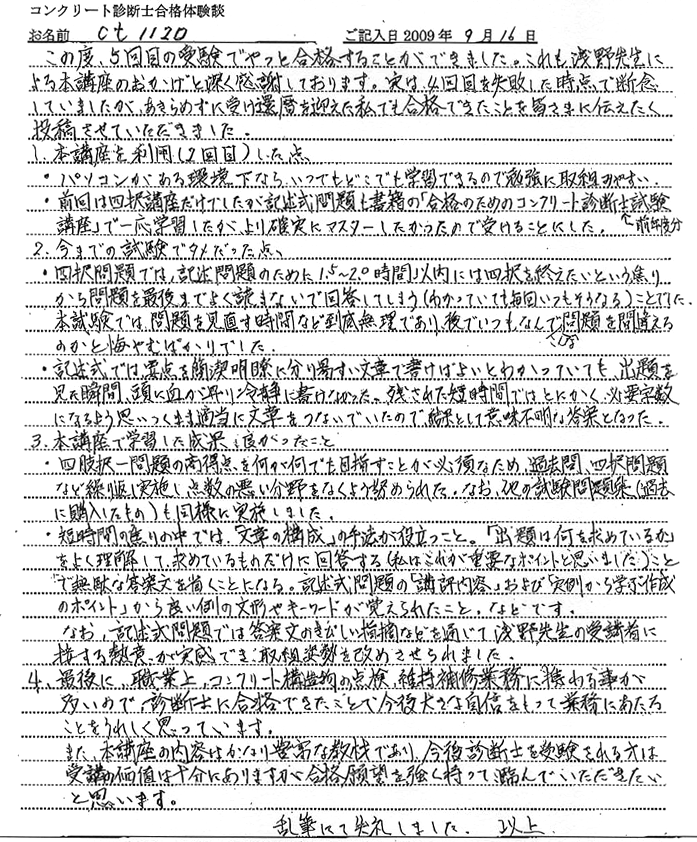 コンクリート診断士合格体験談
お名前 ct 1120 ご記入日2009年 9月 16日
この度、5回目の受験でやっと合格することができました。これも浅野先生に
よる本講座のおかげと深く感謝しております。実は、4回目を失敗した時点で断念
していましたが、あきらめずに受け還暦を迎えた私でも合格できたことを皆さまに伝えたく
投稿させていただきました。
1. 本講座を利用(2回目)した点
・パソコンがある環境下なら、いつでもどこでも学習できるので勉強に取組みやすい。
・前回は四択講座だけでしたが記述式問題も書籍の「合格のためのコンクリート診断士試験
講座」で一応学習したが、より確実にマスターしたかったので受けることにした。 ↖前年度分
2. 今までの試験でダメだった点
・四択問題では、記述問題のために1.5〜2.0時間以内には四択を終えたいという焦り
から問題を最後までよく読まないで回答してしまう(わかっていても毎回いつもそうなる)ことでした。
本試験では、問題を見直す時間など到底無理であり、後でいつもなんで問題を間違える
のかと悔やむばかりでした。
・記述式では、要点を簡潔明瞭に分り易すい文章で書けばよいとわかっていても、出題を
見た瞬間、頭に血が昇り冷静に書けなかった。残された短時間ではとにかく、必要字数
になるよう思いつくまま適当に文章をつないでいたので、結果として意味不明な答案となった。
3. 本講座で学習した成果、良かったこと
・四肢択一問題の高得点を何が何でも目指すことが必須なため、過去問、四択問題
など繰り返し実施し点数の悪い分野をなくよう努められた。なお、他の試験問題集(過去
に購入したもの)も同様に実施しました。
・短時間の焦りの中では、「文章の構成」の手法が役立つこと。「出題は何を求めているか」
をよく理解して、求めているものだけに回答する(私はこれが重要なポイントと思いました)こと
で無駄な答案文を省くことになる。記述式問題の「講評内容」および「実例から学ぶ作成
のポイント」から良い例の文形やキーワードが覚えられたこと。などです。
なお、記述式問題では答案文のきびしい指摘などを通じて浅野先生の受講者に
接する熱意が実感でき、取組姿勢を改めさせられました。
4. 最後に、職業上、コンクリート構造物の点検、維持補修業務に携わる事が
多いので、診断士に合格できたことで今後大きな自信をもって業務にあたる
ことをうれしく思っています。
また、本講座の内容はかなり豊富な教材であり、今後診断士を受験される方は
受講の価値は十分にありますが合格願望を強く持って臨んでいただきたい
と思います。
乱筆にて失礼しました。 以上